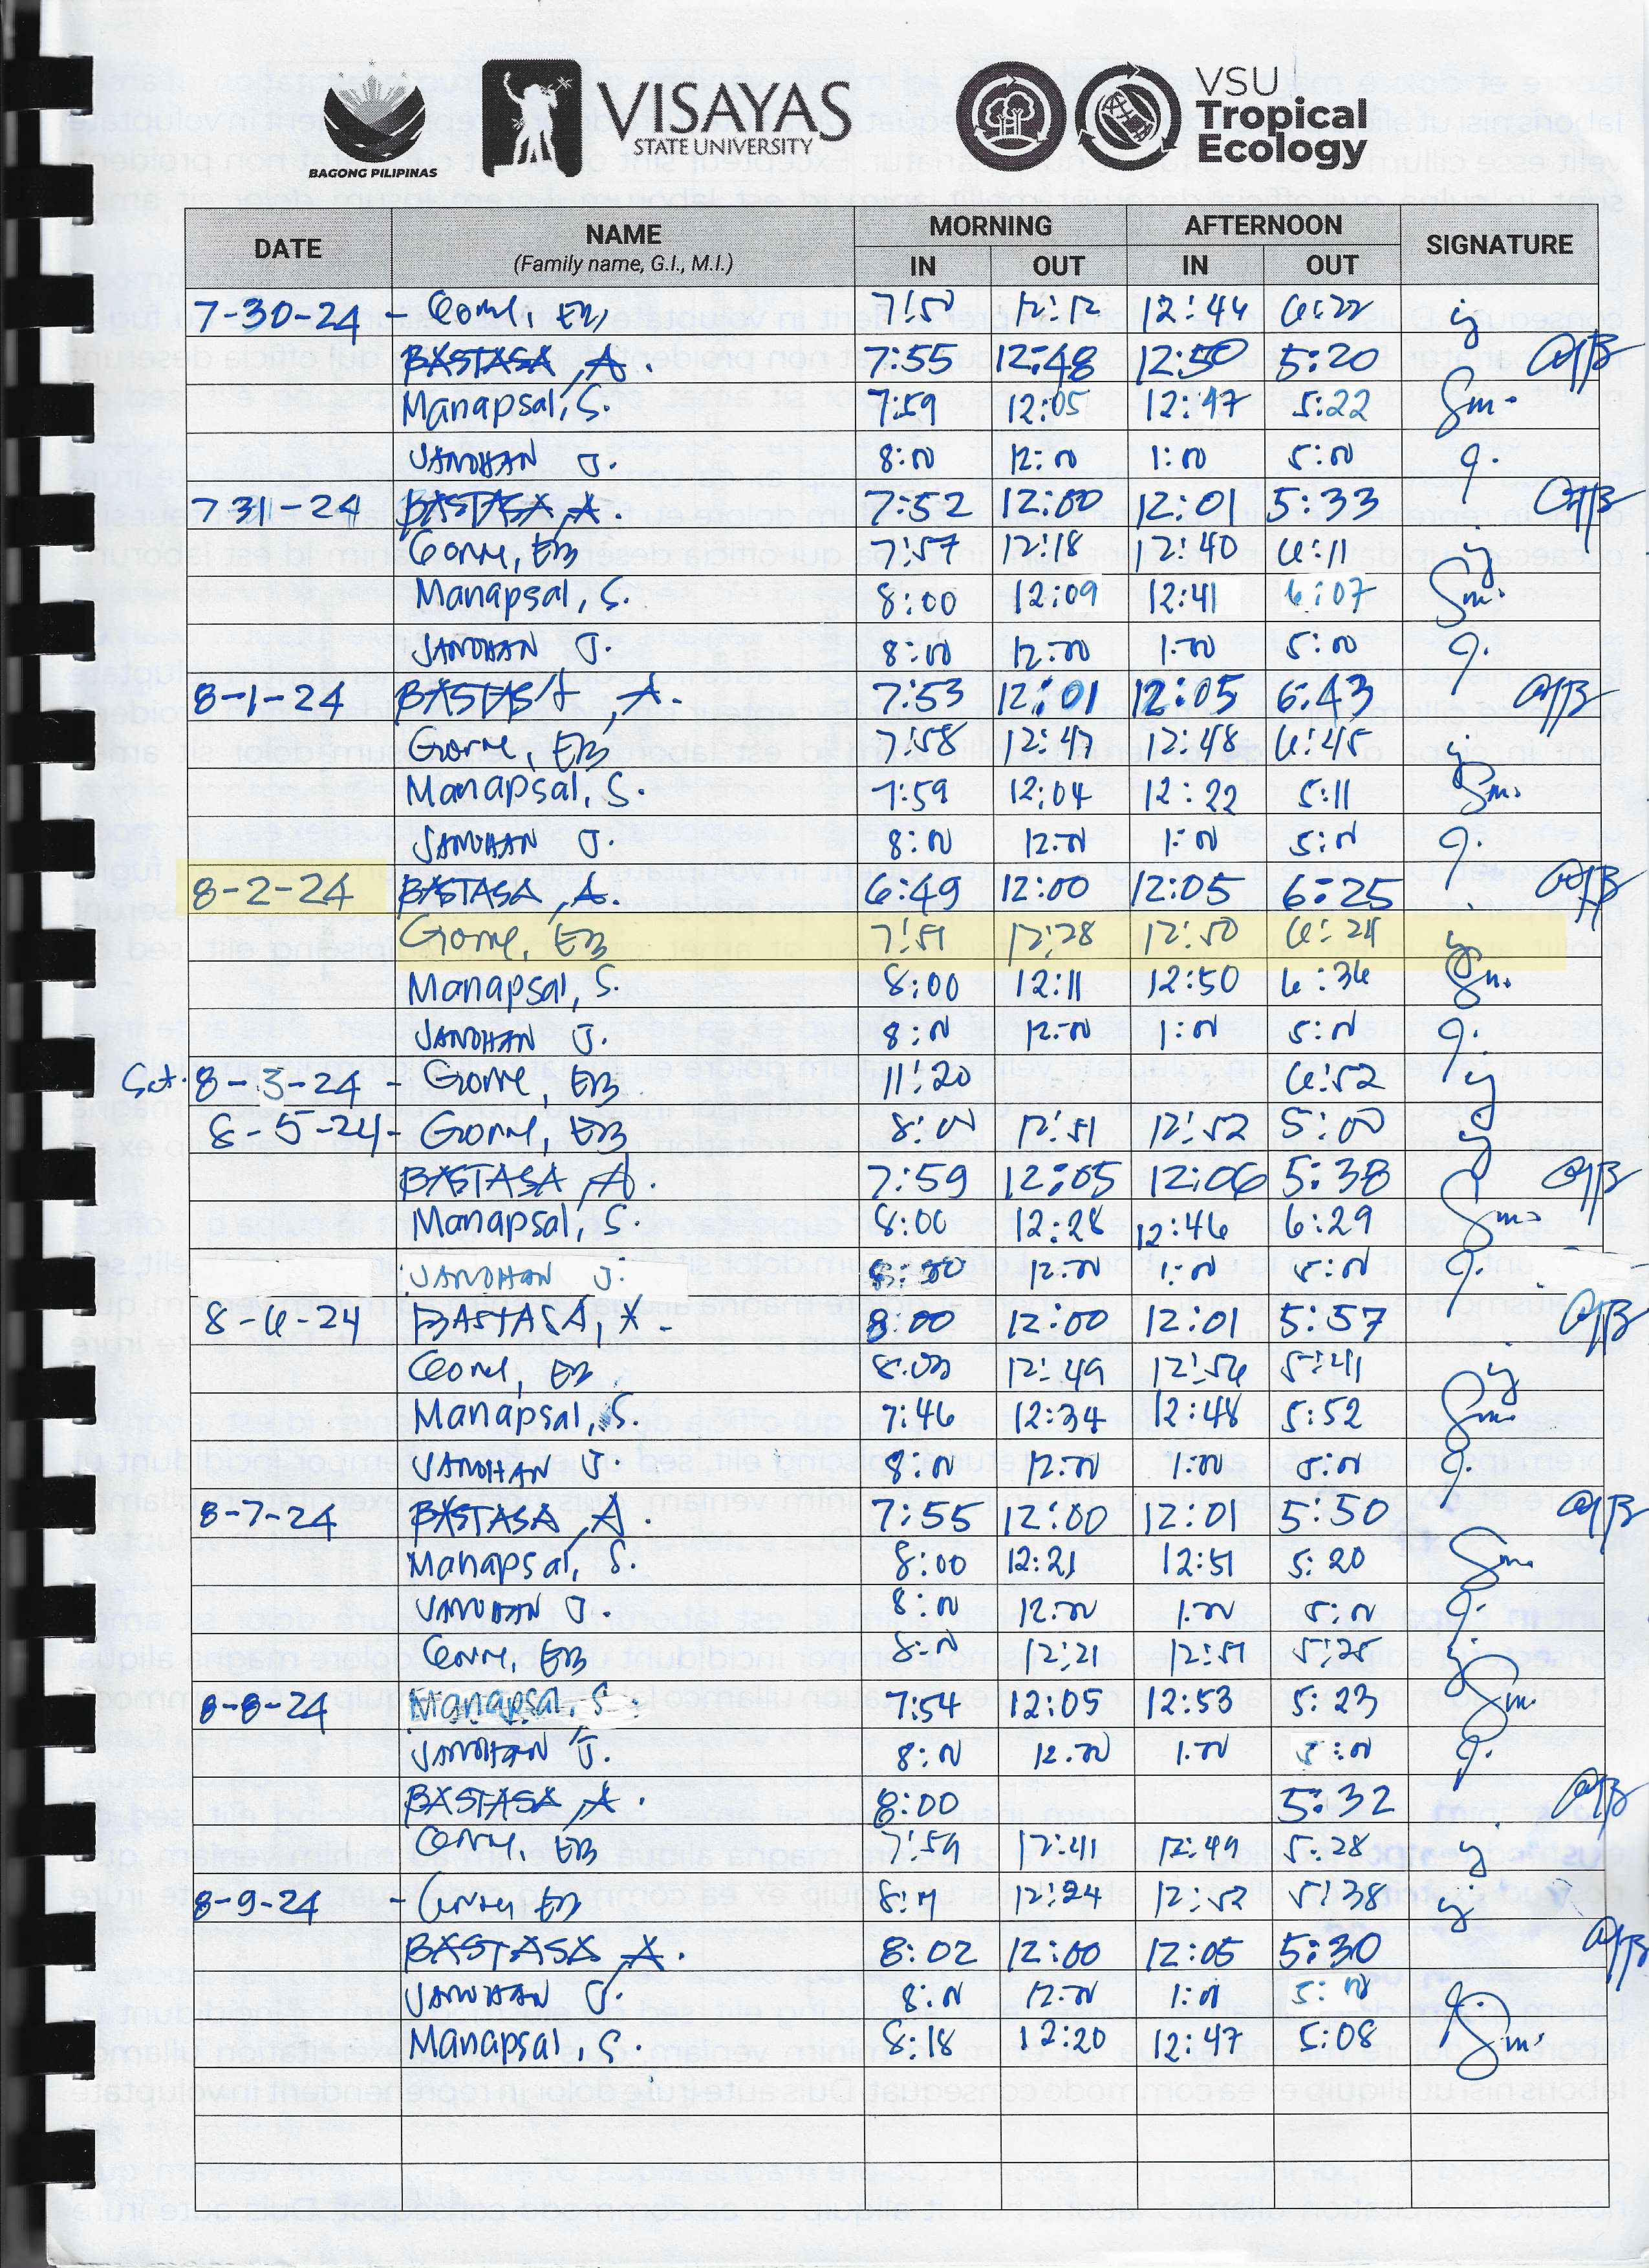 BAGONG PILIPINAS
VISAYAS
STATE UNIVERSITY
VSU
Tropical
Ecology
DATE NAME (Family name, G.I., M.I.) MORNING IN OUT AFTERNOON IN OUT SIGNATURE
7-30-24 - Gorne, EB 12:12 12:44 6:22
BASTASA, A. 7:55 12:48 12:50 5:20
Manapsal, S. 7:59 12:05 12:47 5:22
JANDHAN J. 8:00 12:00 1:00 5:00
7-31-24 BASTASA, A. 7:52 12:00 12:01 5:33
Gorne, EB 7:57 12:18 12:40 6:11
Manapsal, S. 8:00 12:09 12:41 6:07
JANDHAN J. 8:00 12:00 1:00 5:00
8-1-24 BASTASA, A. 7:53 12:01 12:05 6:43
Gorne, EB 7:58 12:47 12:48 6:45
Manapsal, S. 7:59 12:04 12:22 5:11
JANDHAN J. 8:00 12:00 1:00 5:00
8-2-24 BASTASA, A. 6:49 12:00 12:05 6:25
Gorne, EB 7:51 12:28 12:50
Manapsal, S. 8:00 12:11 12:50 6:36
JANDHAN J. 8:00 12:00 1:00 5:00
Sat. 8-3-24 - Gorne, EB 11:20 6:52
8-5-24 - Gorne, EB 8:00 12:51 12:52 5:00
BASTASA, A. 7:59 12:05 12:06 5:38
Manapsal, S. 8:00 12:28 12:46 6:29
JANDHAN J. 8:00 12:00 1:00 5:00
8-6-24 BASTASA, A. 8:00 12:00 12:01 5:57
Gorne, EB 12:49 12:56 5:41
Manapsal, S. 7:46 12:34 12:48 5:52
JANDHAN J. 8:00 12:00 1:00 5:00
8-7-24 BASTASA, A. 7:55 12:00 12:01 5:50
Manapsal, S. 8:00 12:21 12:51 5:20
JANDHAN J. 8:00 12:00 1:00 5:00
Gorne, EB 8:00 12:21 12:51 5:25
8-8-24 Manapsal, S. 7:54 12:05 12:53 5:23
JANDHAN J. 8:00 12:00 1:00 5:00
BASTASA, A. 8:00 5:32
Gorne, EB 7:59 12:41 12:49 5:28
8-9-24 - Gorne EB 12:24 12:52 5:38
BASTASA, A. 8:02 12:00 12:05 5:30
JANDHAN J. 8:00 12:00 1:00 5:00
Manapsal, S. 8:18 12:20 12:47 5:08